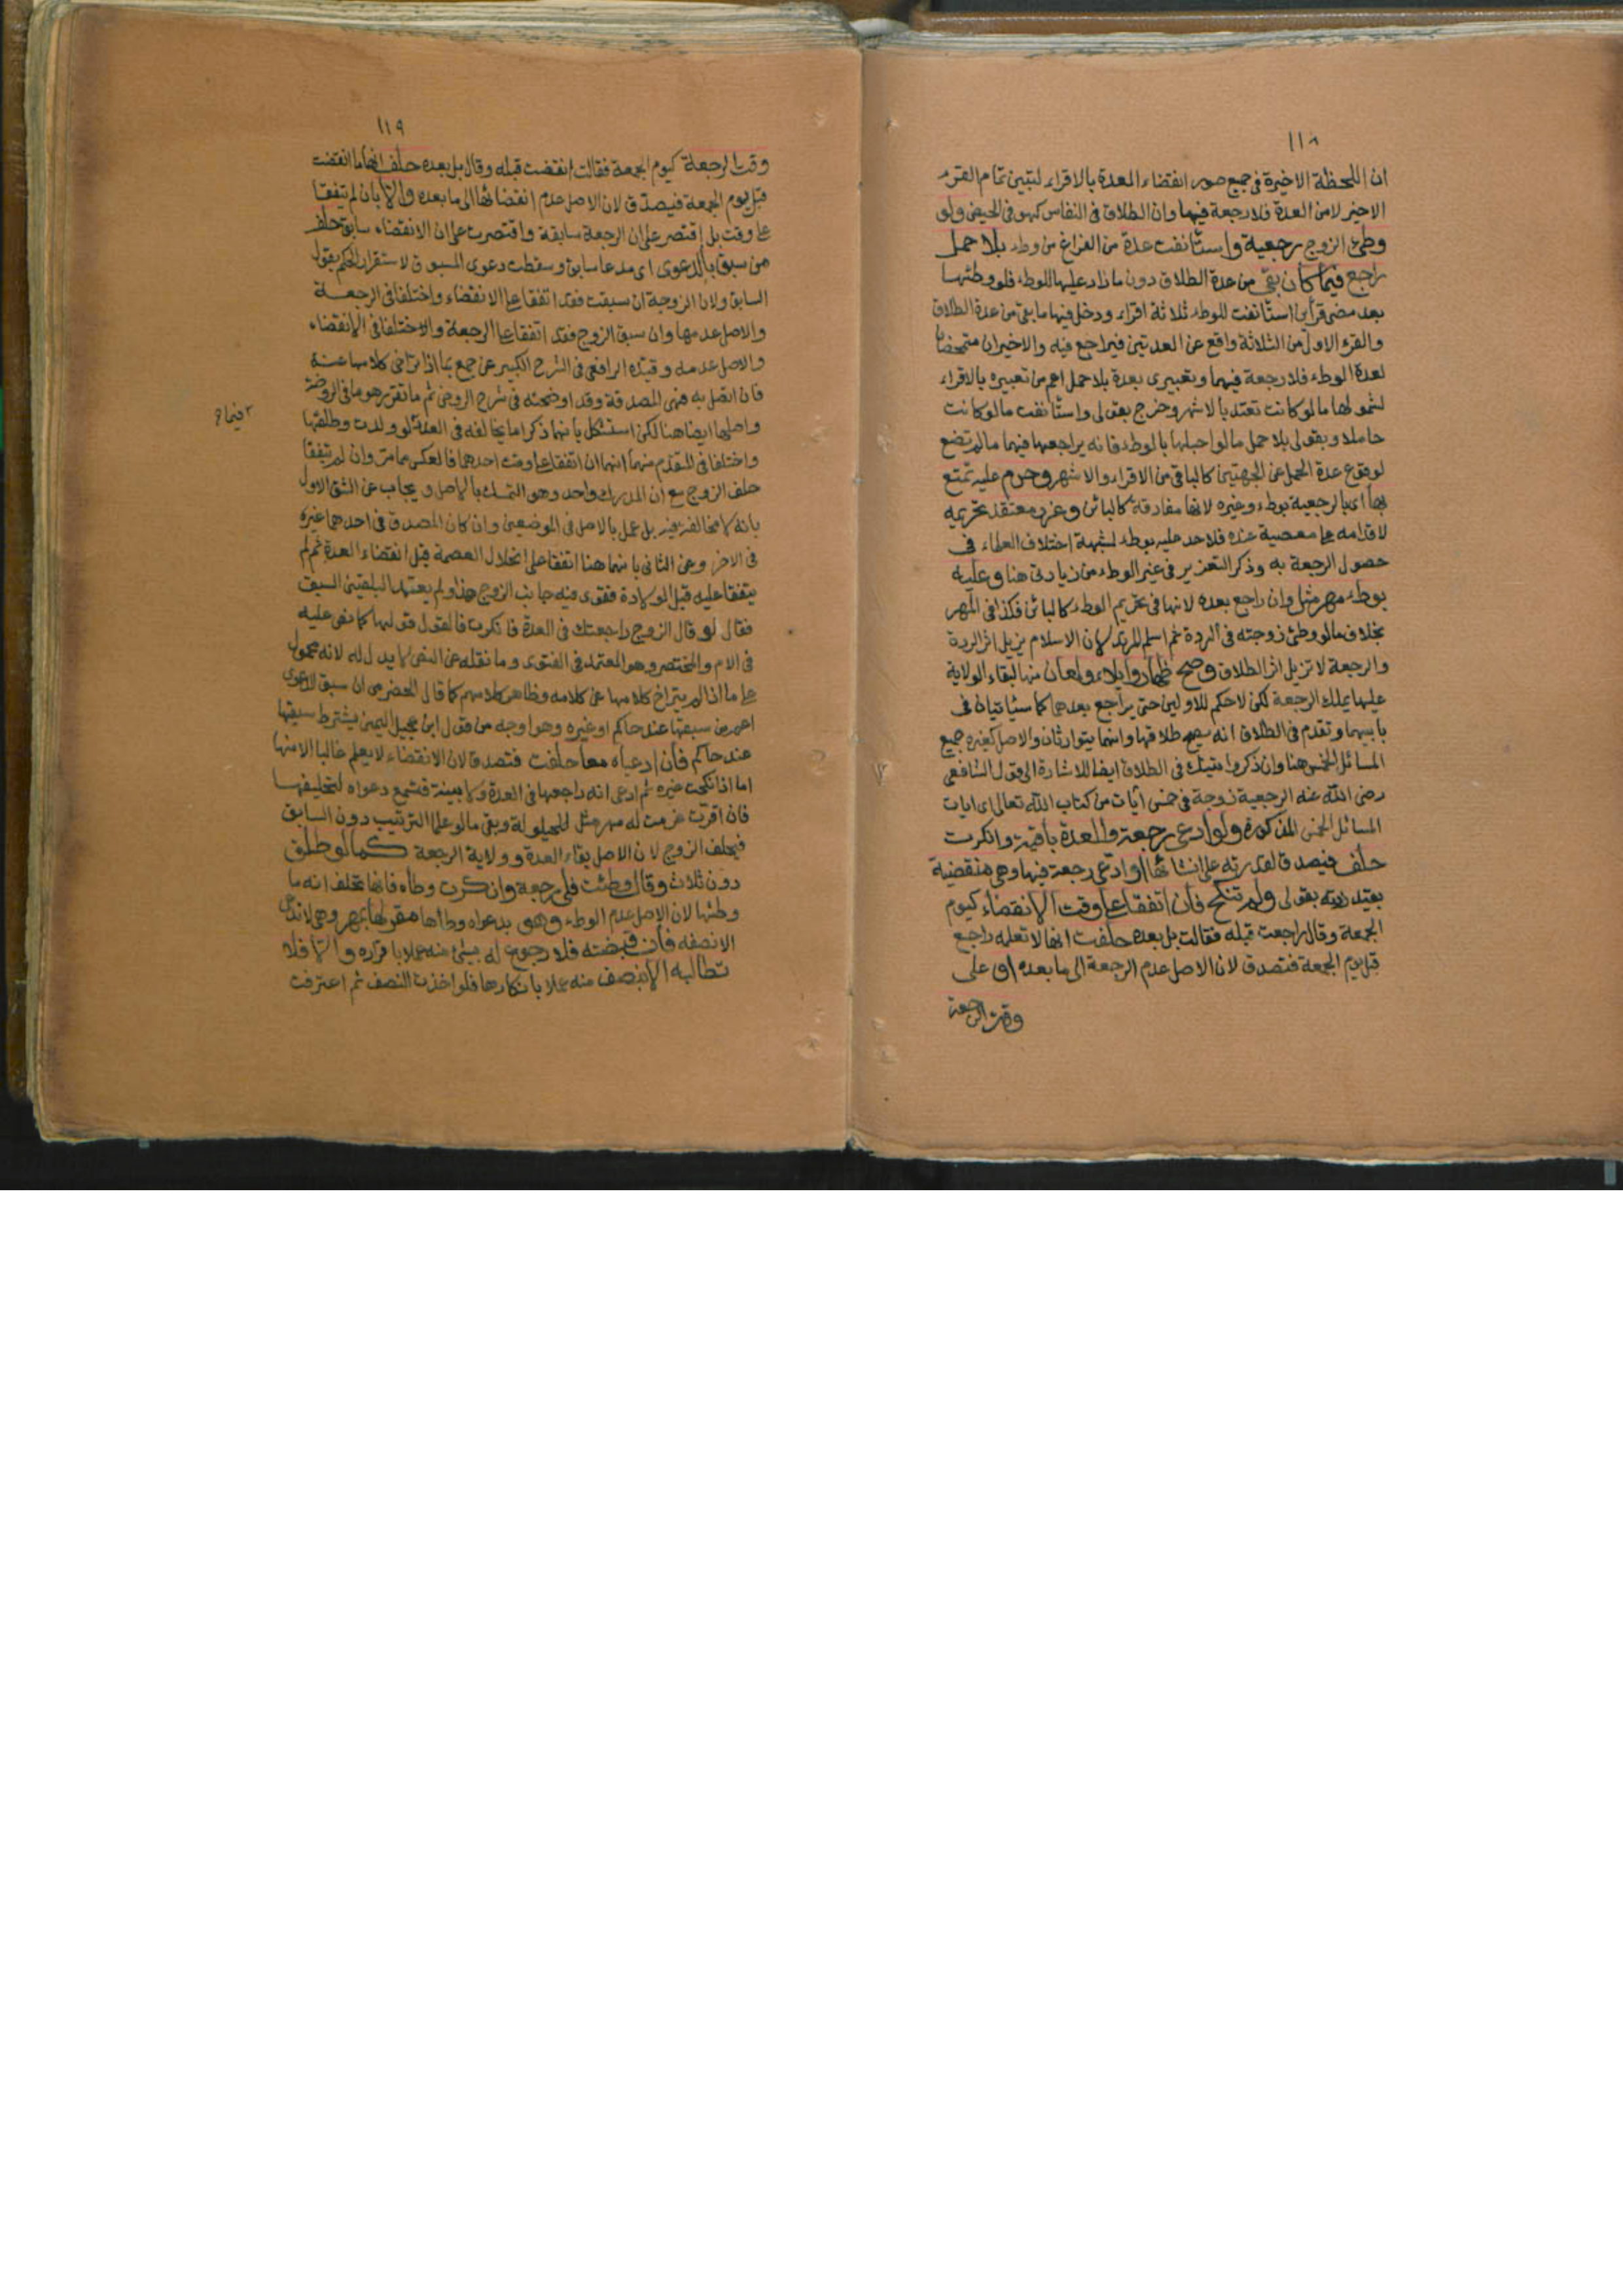 ١١٨
ان اللحظة الاخيرة فى جميع صور انقضاء العدة بالاقراء لتبين تمام القرء
الاخير لا من العدة فلا رجعة فيها وان الطلاق فى النفاس كهو فى الحيض ولو
وطئ الزوج رجعية واستأنفت عدة من الفراغ من وطء بلا حمل
راجع فيما كان بقى من عدة الطلاق دون ما زاد عليها للوطء فلو وطئها
بعد مضى قرأين استأنفت للوطء ثلاثة اقراء ودخل فيها ما بقى من عدة الطلاق
والقرء الاول من الثلاثة واقع عن العدتين فيراجع فيه والاخيران متمحضان
لعدة الوطء فلا رجعة فيهما وتعبيرى بعدة بلا حمل اعم من تعبيره بالاقراء
لشموله لها ما لو كانت تعتد بالاشهر وخرج بقولى واستأنفت ما لو كانت
حاملا وبقولى بلا حمل ما لو احبلها بالوطء فانه يراجعها فيهما ما لم تضع
لوقوع عدة الحمل عن الجهتين كالباقى من الاقراء والاشهر وحرم عليه تمتع
بها اى بالرجعية بوطء وغيره لانها مفارقة كالبائن وعزر معتقد تحريمه
لاقدامه على معصية عنده فلا حد عليه بوطء لشبهة اختلاف العلماء فى
حصول الرجعة به وذكر التعزير فى غير الوطء من زيادتى هنا وعليه
بوطء مهر مثل وان راجع بعده لانها فى تحريم الوطء كالبائن فكذا فى المهر
بخلاف ما لو وطئ زوجته فى الردة ثم اسلم المرتد لان الاسلام يزيل اثر الردة
والرجعة لا تزيل اثر الطلاق وصح ظهار وايلاء ولعان منها لبقاء الولاية
عليها بملك الرجعة لكن لا حكم للاولين حتى يراجع بعدهما كما سيأتيان فى
بابيهما وتقدم فى الطلاق انه يصح طلاقها وانهما يتوارثان والاصل كغيره جمع
المسائل الخمس هنا وان ذكروا تينك فى الطلاق ايضا للاشارة الى قول الشافعى
رضى الله عنه الرجعية زوجة فى خمس آيات من كتاب الله تعالى اى ايات
المسائل الخمس المذكورة ولو ادعى رجعة والعدة باقية وانكرت
حلف فيصدق لقدرته على انشائها او ادعى رجعة فيها وهى منقضية
بقيد زدته بقولى ولم تنكح فان اتفقا على وقت الانقضاء كيوم
الجمعة وقال راجعت قبله فقالت بل بعده حلفت انها لا تعلمه راجع
قبل يوم الجمعة فتصدق لان الاصل عدم الرجعة الى ما بعده او على
وقت الرجعة
١١٩
وقت الرجعة كيوم الجمعة فقالت انقضت قبله وقال بل بعده حلف انها ما انقضت
قبل يوم الجمعة فيصدق لان الاصل عدم انقضائها الى ما بعده والا بان لم يتفقا
على وقت بل اقتصر على ان الرجعة سابقة واقتصرت على ان الانقضاء سابق حلف
من سبق بالدعوى اى مدعاه سابق وسقطت دعوى المسبوق لاستقرار الحكم بقول
السابق ولان الزوجة ان سبقت فقد اتفقا على الانقضاء واختلفا فى الرجعة
والاصل عدمها وان سبق الزوج فقد اتفقا على الرجعة والاختلفا فى الانقضاء
والاصل عدمه وقيده الرافعى فى الشرح الكبير عن جمع بما اذا تراخى كلامها عنه
فان اتصل به فهى المصدقة وقد اوضحته فى شرح الروض ثم ما تقرر هو ما فى الروضة
واصلها ايضا هنا لكن استشكل بانهما ذكرا ما يخالفه فى العدد لو ولدت وطلقها
واختلفا فى المتقدم منهما انهما ان اتفقا على وقت احدهما فالعكس مما مر وان لم يتفقا
٢ فيما م
حلف الزوج مع ان المدرك واحد وهو التمسك بالاصل ويجاب عن الشق الاول
بانه لا مخالفة فيه بل عمل بالاصل فى الموضعين وان كان المصدق فى احدهما غيره
فى الاخر وعن الثانى بانهما هنا اتفقا على انحلال العصمة قبل انقضاء العدة وثم لم
يتفقا عليه قبل الولادة فقوى فيه جانب الزوج هذا ولم يعتمد البلقينى السبق
فقال لو قال الزوج راجعتك فى العدة فانكرت فالقول قولها كما نص عليه
فى الام والمختصر وهو المعتمد فى الفتوى وما نقله عن النص لا يدل له لانه محمول
على ما اذا لم يتراخ كلامها عن كلامه وظاهر كلامهم كما قال الحضرمى ان سبق الدعوى
اعم من سبقها عند حاكم او غيره وهو اوجه من قول ابن عجيل اليمنى يشترط سبقها
عند حاكم فان ادعياه معا حلفت فتصدق لان الانقضاء لا يعلم غالبا الا منها
اما اذا نكحت غيره ثم ادعى انه راجعها فى العدة ولا بينة فتسمع دعواه لتحليفها
فان اقرت غرمت له مهر مثل للحيلولة وبقى ما لو علما الترتيب دون السابق
فيحلف الزوج لان الاصل بقاء العدة وولاية الرجعة كما لو طلق
دون ثلاث وقال وطئت فلى رجعة وانكرت وطأه فانها تحلف انه ما
وطئها لان الاصل عدم الوطء وهو بدعواه وطأها مقر لها بمهر وهى لا تدعى
الا نصفه فان قبضته فلا رجوع له بشئ منه عملا باقراره والا فلا
تطالبه الا بنصف منه عملا بانكارها فلو اخذت النصف ثم اعترفت